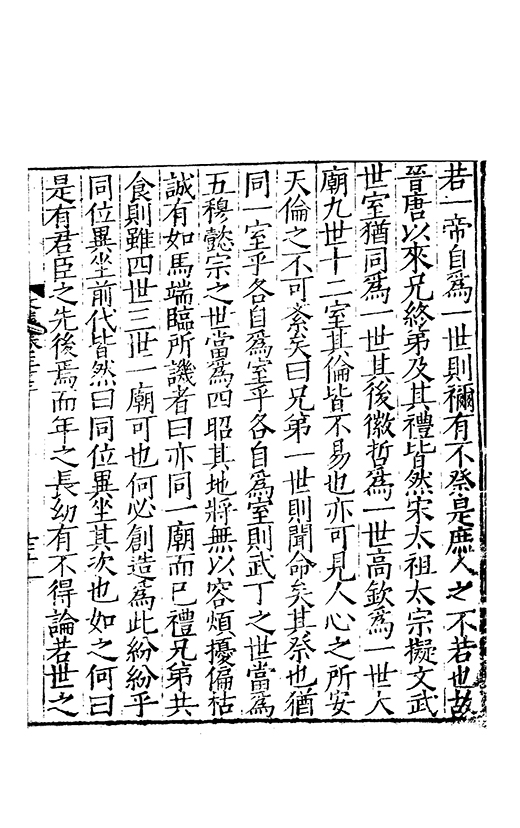 若一帝自爲一世則禰有不祭是庶人之不若也故
晉唐以來兄終弟及其禮皆然宋太祖太宗擬文武
世室猶同爲一世其後徽哲爲一世高欽爲一世大
廟九世十二室其倫皆不易也亦可見人心之所安
天倫之不可紊矣曰兄弟一世則聞命矣其祭也猶
同一室乎各自爲室乎各自爲室則武丁之世當爲
五穆懿宗之世當爲四昭其地將無以容煩擾偏枯
誠有如馬端臨所譏者曰亦同一廟而已禮兄弟共
食則雖四世三世一廟可也何必創造爲此紛紛乎
同位異坐前代皆然曰同位異坐其次也如之何曰
是有君臣之先後焉而年之長幼有不得論若世之